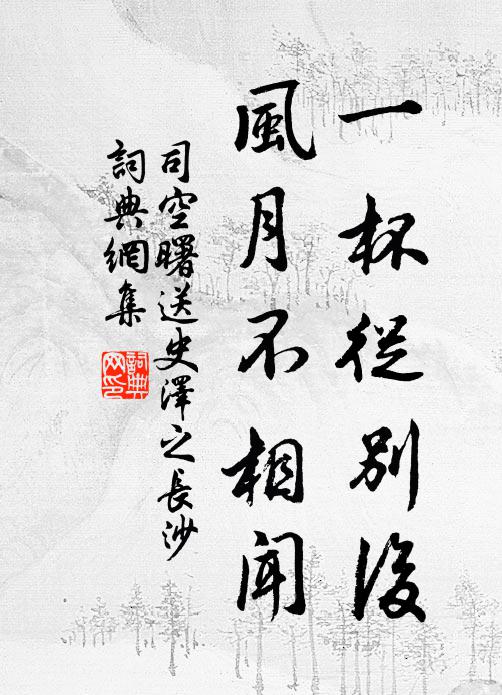 一杯從別後
風月不相聞
司空曙送史澤之長沙
詞典網集
詞典网印